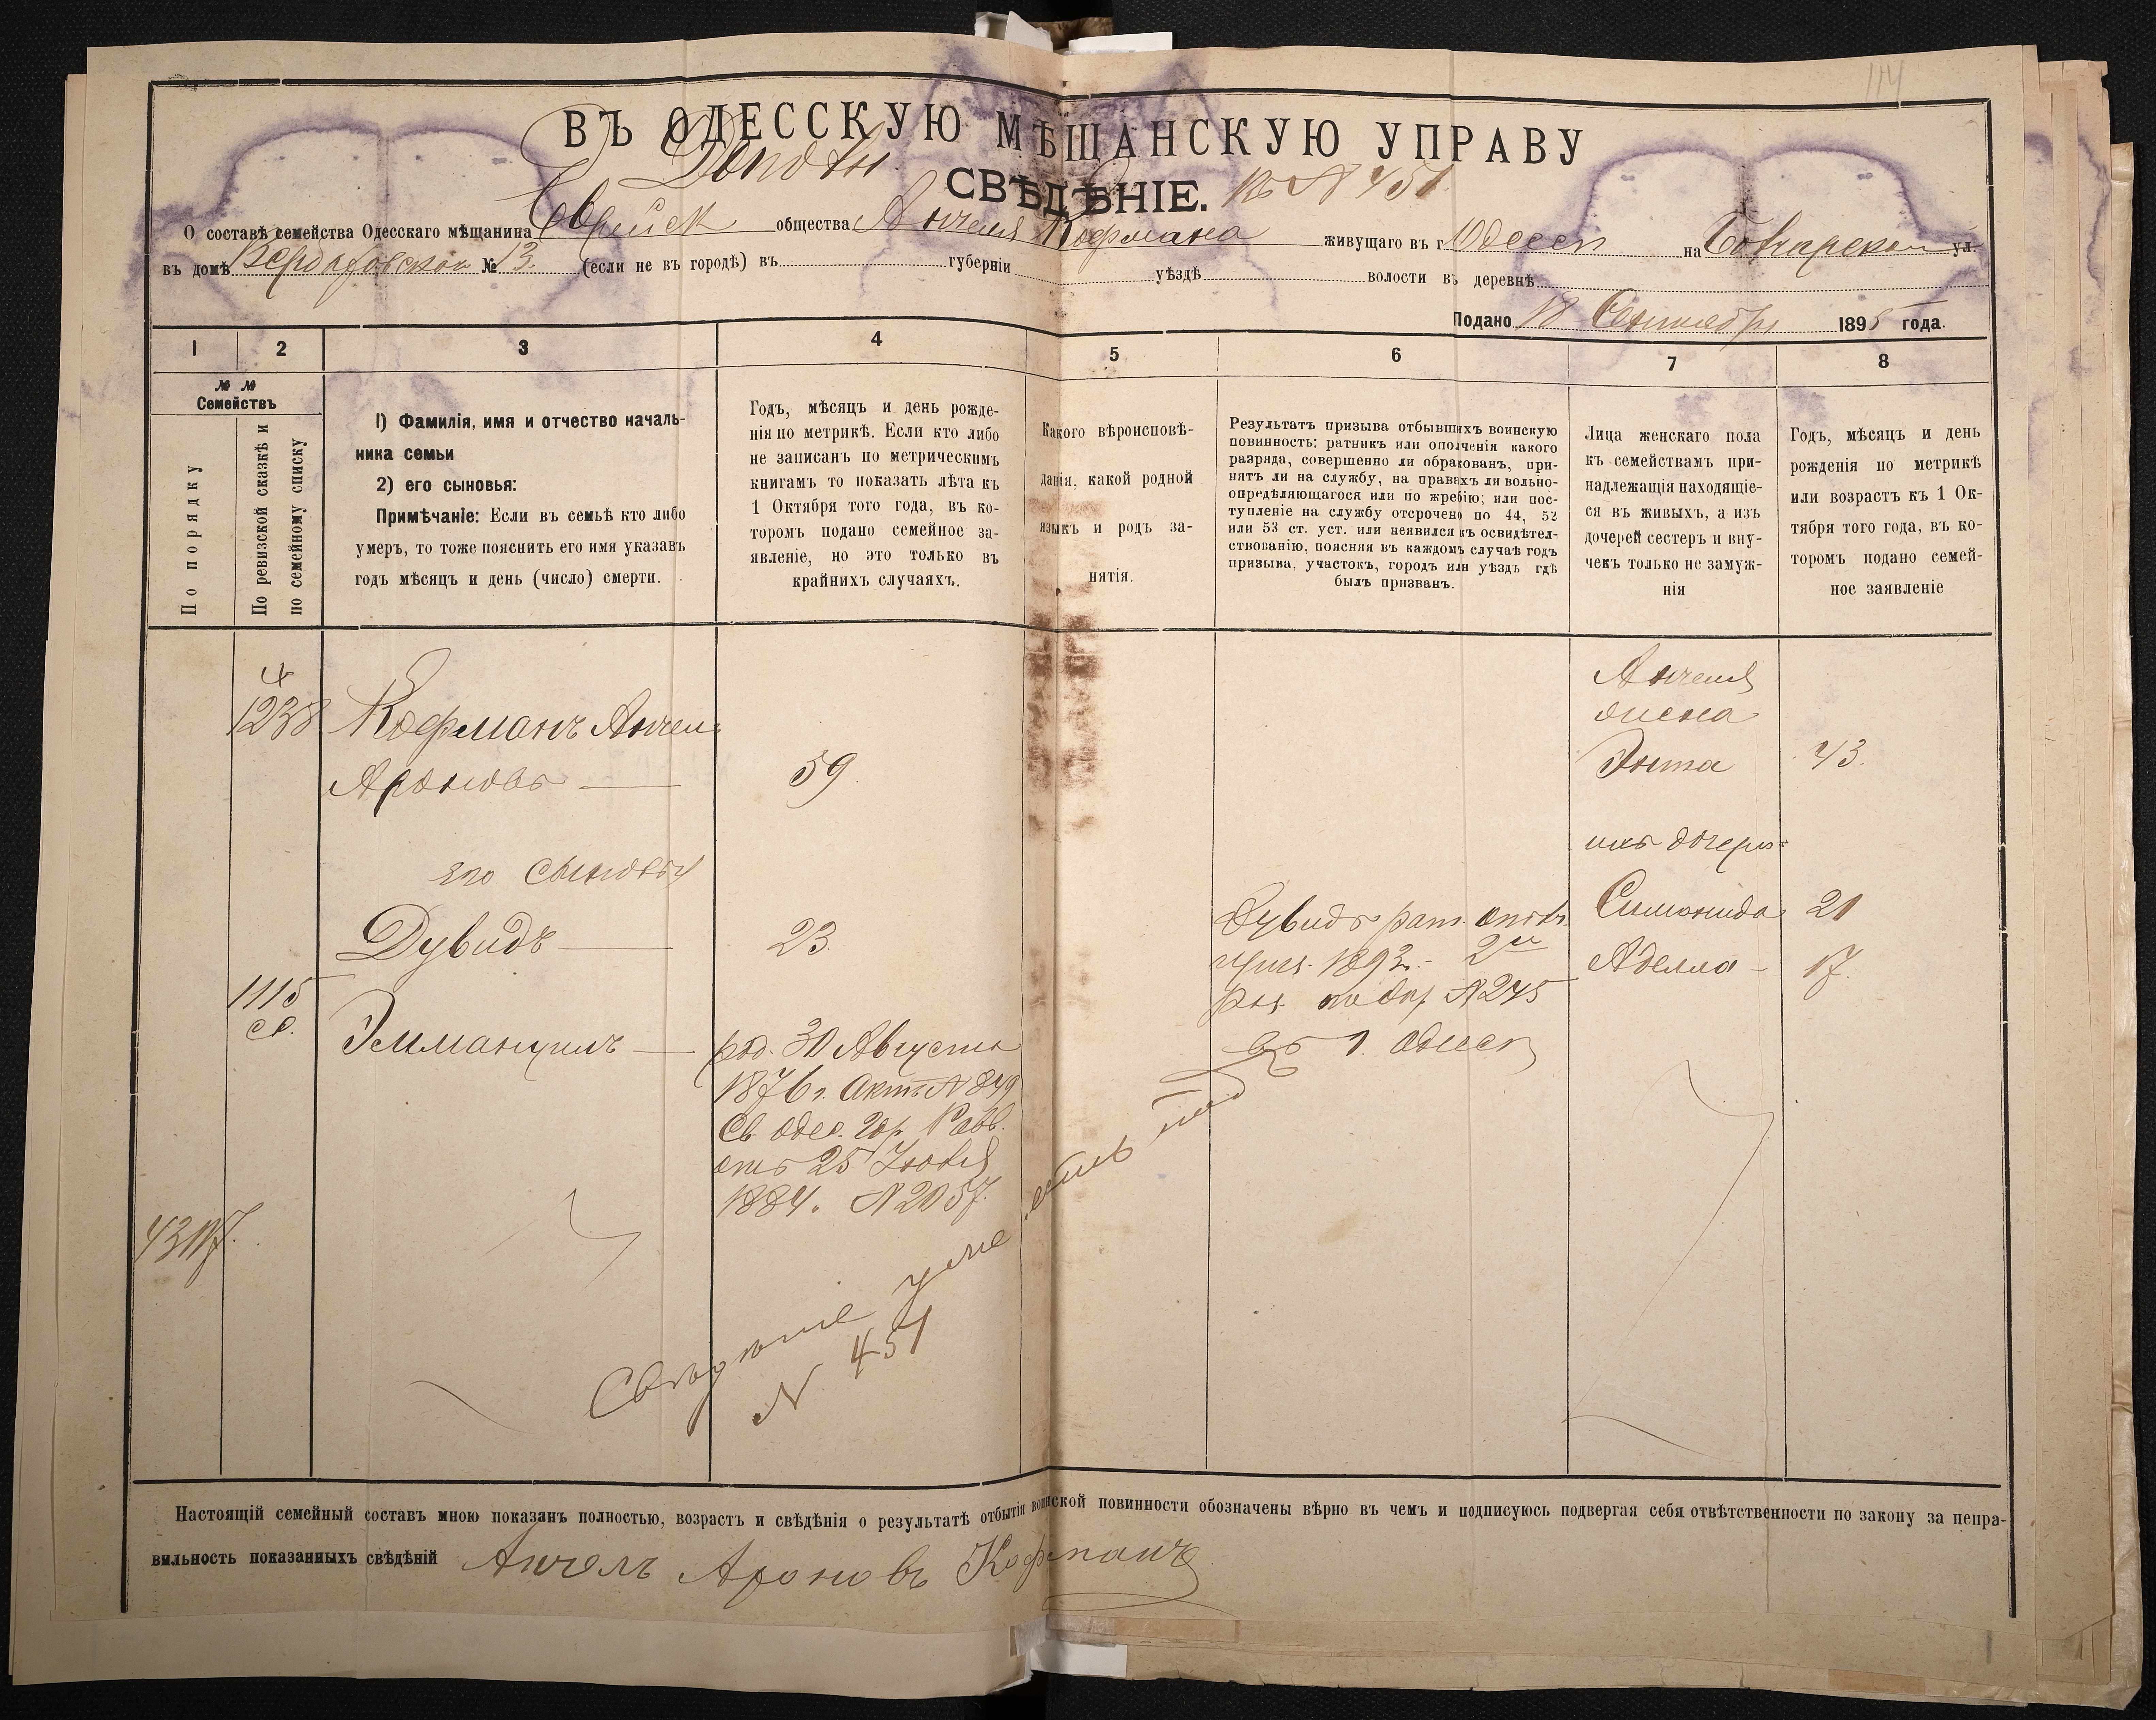 114
ВЪ ОДЕССКУЮ МѢЩАНСКУЮ УПРАВУ
СВѢДѢНІЕ. къ № 451
О составѣ семейства Одесскаго мѣщанина Еврейск общества Анчеля Кофмана живущаго въ г. Одессѣ на ул.
въ домѣ № 13. (если не въ городѣ) въ губерніи уѣздѣ волости въ деревнѣ
Подано 18 Сентября 1895 года.
1 2 3 4 5 6 7 8
№ №
Семействъ
По порядку
По ревизской сказкѣ и
по семейному списку
1) Фамилія, имя и отчество началь-
ника семьи
2) его сыновья:
Примѣчаніе: Если въ семьѣ кто либо
умеръ, то тоже пояснить его имя указавъ
годъ мѣсяцъ и день (число) смерти.
Годъ, мѣсяцъ и день рожде-
нія по метрикѣ. Если кто либо
не записанъ по метрическимъ
книгамъ то показать лѣта къ
1 Октября того года, въ ко-
торомъ подано семейное за-
явленіе, но это только въ
крайнихъ случаяхъ.
Какого вѣроисповѣ-
данія, какой родной
языкъ и родъ за-
нятія.
Результатъ призыва отбывшихъ воинскую
повинность: ратникъ или ополченія какого
разряда, совершенно ли обракованъ, при-
нятъ ли на службу, на правахъ ли вольно-
опредѣляющагося или по жребію; или пос-
тупленіе на службу отсрочено по 44, 52
или 53 ст. уст. или неявился къ освидѣтел-
ствованію, поясняя въ каждомъ случаѣ годъ
призыва, участокъ, городъ или уѣздъ гдѣ
былъ призванъ.
Лица женскаго пола
къ семействамъ при-
надлежащія находящіе-
ся въ живыхъ, а изъ
дочерей сестеръ и вну-
чекъ только не замуж-
нія
Годъ, мѣсяцъ и день
рожденія по метрикѣ
или возрастъ къ 1 Ок-
тября того года, въ ко-
торомъ подано семей-
ное заявленіе
1238
Кофманъ Анчель
Ароновъ 59
его сыновья
Дувидъ 23
1115
Эммануилъ
род. 30 Августа
1876 г. Актъ № 849
Св. Одес. Гор. Равв.
отъ 25 Іюля
1884. № 2057.
Дувидъ рат. опол.
приз. 1893 г. 2й
раз. № 245
въ г. Одессѣ
Анчеля
жена
Энта 43.
ихъ дочери
Симонида 21
Аделла 17.
Свѣдѣніе уже есть под
№ 451
Настоящій семейный составъ мною показанъ полностью, возрастъ и свѣдѣнія о результатѣ отбытія воинской повинности обозначены вѣрно въ чемъ и подписуюсь подвергая себя отвѣтственности по закону за непра-
вильность показанныхъ свѣдѣній Анчель Ароновъ Кофманъ